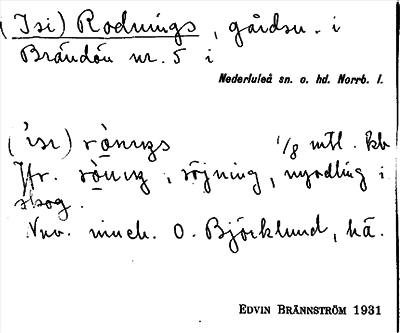 (Isi) Rodnings, gårdsn. i
Brändön nr. 5 i
Nederluleå sn. o. hd. Norrb. l.
('isi) rò̱nıŋs 1/8 mtl. kb
Jfr. rò̱nıŋ, röjning, nyodling i
skog.
Nuv. inneh. O. Björklund, hä.
EDVIN BRÄNNSTRÖM 1931